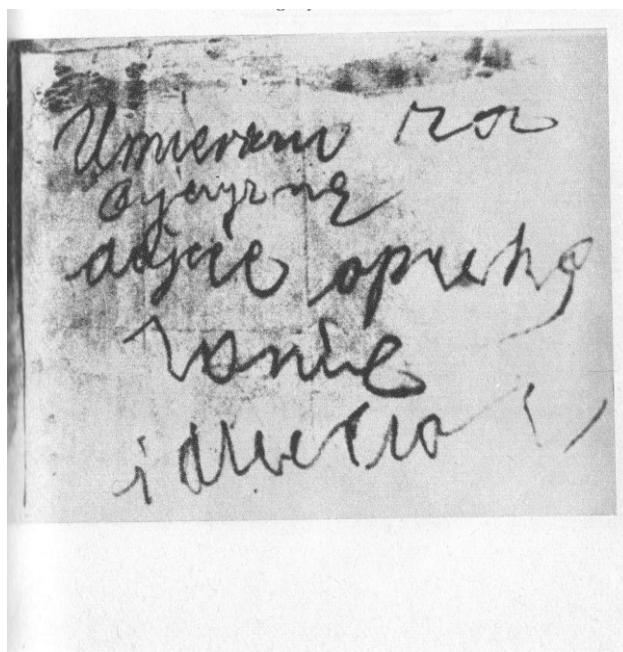 Umieram za
ojczyznę
dajcie opiekę
zonie
i dziecio